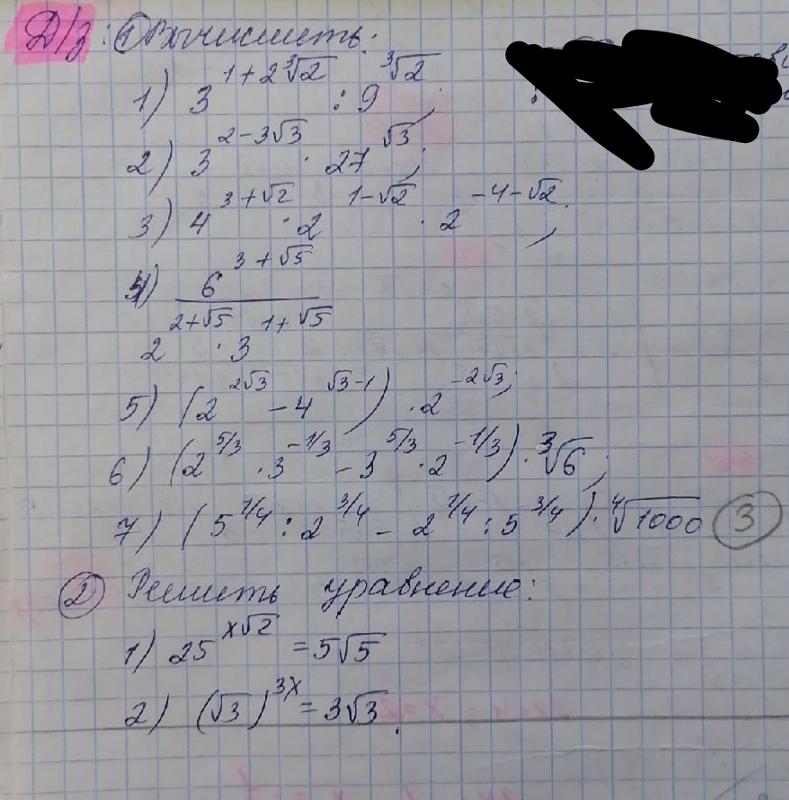 Д/з: ① Вычислить:
1) 3^{1+2∛2} : 9^{∛2};
2) 3^{2-3√3} · 27^{√3};
3) 4^{3+√2} · 2^{1-√2} · 2^{-4-√2};
4) 6^{3+√5} / (2^{2+√5} · 3^{1+√5})
5) (2^{2√3} - 4^{√3-1}) · 2^{-2√3};
6) (2^{5/3} · 3^{-1/3} - 3^{5/3} · 2^{-1/3}) · ∛6;
7) (5^{1/4} : 2^{3/4} - 2^{1/4} : 5^{3/4}) · ∜1000 ③
② Решить уравнение:
1) 25^{x√2} = 5√5
2) (√3)^{3x} = 3√3.